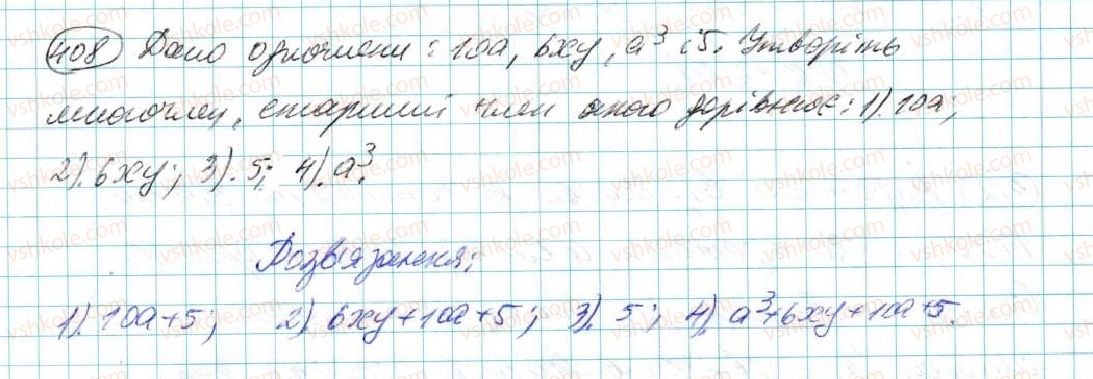 408 Дано одночлени: 10a, 6xy, a³ і 5. Утворіть
многочлен, старший член якого дорівнює: 1). 10a;
2). 6xy; 3). 5; 4). a³.
Розв'язання:
1). 10a+5; 2). 6xy+10a+5; 3). 5; 4). a³+6xy+10a+5.